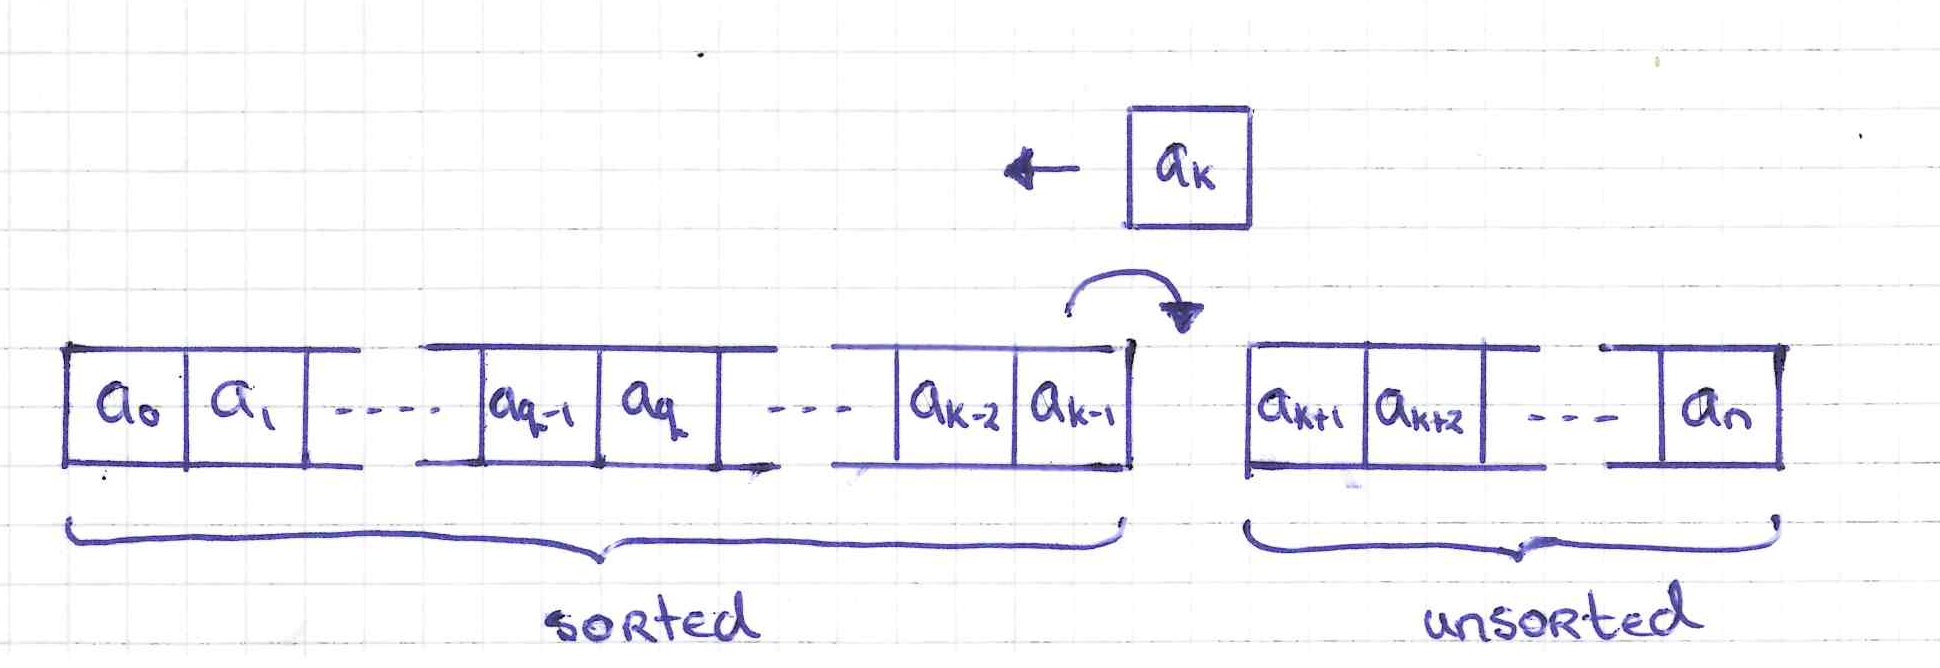 aₖ
a₀ a₁ ---- a_q-1 a_q --- aₖ₋₂ aₖ₋₁ aₖ₊₁ aₖ₊₂ --- aₙ
sorted unsorted